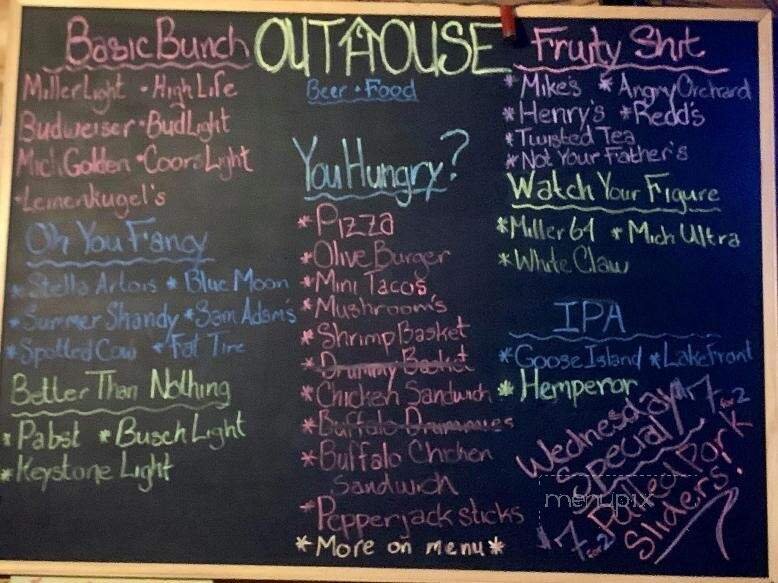 Basic Bunch
Miller Light • High Life
Budweiser • Bud Light
Mich Golden • Coors Light
• Leinenkugel's
Oh You Fancy
* Stella Artois * Blue Moon
* Summer Shandy * Sam Adam's
* Spotted Cow * Fat Tire
Better Than Nothing
* Pabst * Busch Light
* Keystone Light
OUTHOUSE
Beer • Food
You Hungry?
* Pizza
* Olive Burger
* Mini Tacos
* Mushroom's
* Shrimp Basket
* Drummy Basket
* Chicken Sandwich
* Buffalo Drummies
* Buffalo Chicken
Sandwich
* Pepperjack sticks
* More on menu *
Fruity Shit
* Mike's * Angry Orchard
* Henry's * Redd's
* Twisted Tea
* Not Your Father's
Watch Your Figure
* Miller 64 * Mich Ultra
* White Claw
IPA
* Goose Island * Lakefront
* Hemperor
Wednesday
Special
$7 for 2
Pulled Pork
Sliders!
$7 for 2
menupix